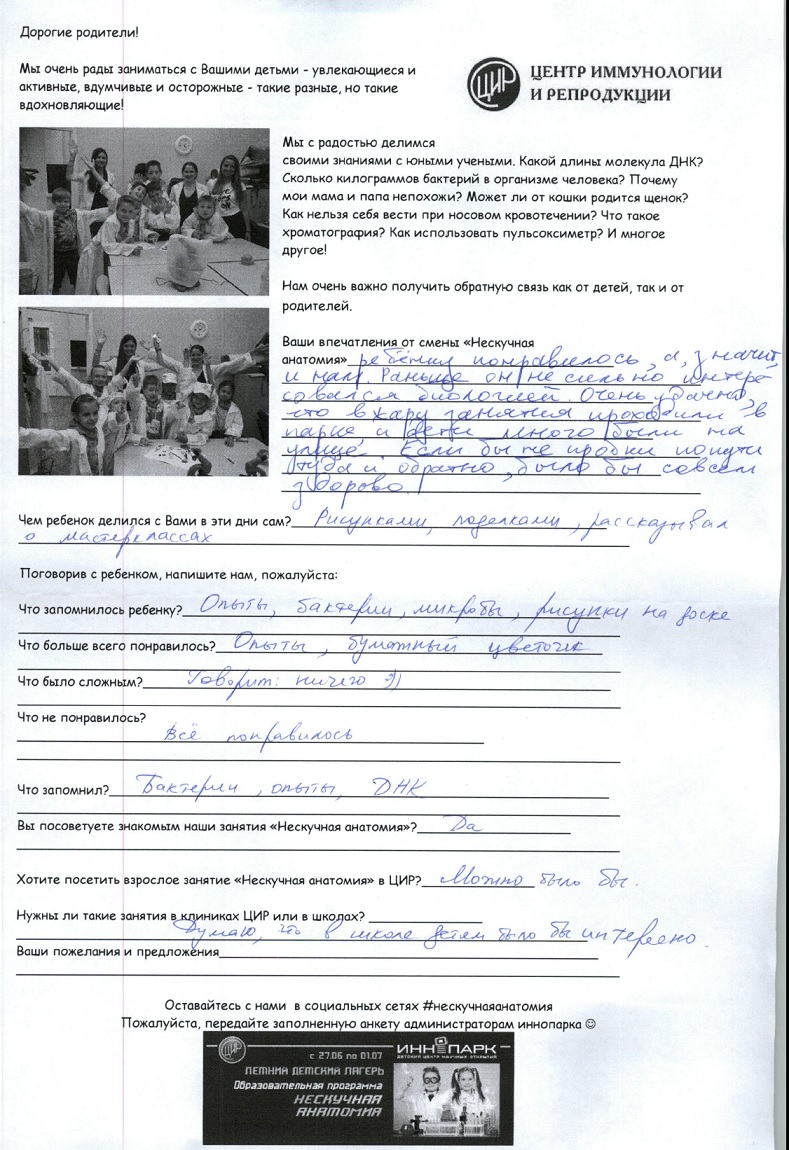 Дорогие родители!
Мы очень рады заниматься с Вашими детьми - увлекающиеся и
активные, вдумчивые и осторожные - такие разные, но такие
вдохновляющие!
ЦИР
ЦЕНТР ИММУНОЛОГИИ
И РЕПРОДУКЦИИ
Мы с радостью делимся
своими знаниями с юными учеными. Какой длины молекула ДНК?
Сколько килограммов бактерий в организме человека? Почему
мои мама и папа непохожи? Может ли от кошки родится щенок?
Как нельзя себя вести при носовом кровотечении? Что такое
хроматография? Как использовать пульсоксиметр? И многое
другое!
Нам очень важно получить обратную связь как от детей, так и от
родителей.
Ваши впечатления от смены «Нескучная
анатомия» ребёнку понравилось, а, значит,
и нам. Раньше он не сильно интере-
совался биологией. Очень удачно,
что в жару занятия проходили в
парке и дети много были на
улице. Если бы не пробки по пути
туда и обратно, было бы совсем
здорово.
Чем ребенок делился с Вами в эти дни сам? Рисунками, поделками, рассказывал
о мастерклассах
Поговорив с ребенком, напишите нам, пожалуйста:
Что запомнилось ребенку? Опыты, бактерии, микробы, рисунки на доске
Что больше всего понравилось? Опыты, бумажный цветочек
Что было сложным? Говорит: ничего :))
Что не понравилось?
Всё понравилось
Что запомнил? Бактерии, опыты, ДНК
Вы посоветуете знакомым наши занятия «Нескучная анатомия»? Да
Хотите посетить взрослое занятие «Нескучная анатомия» в ЦИР? Можно было бы.
Нужны ли такие занятия в клиниках ЦИР или в школах?
Думаю, что в школе детям было бы интересно.
Ваши пожелания и предложения
Оставайтесь с нами в социальных сетях #нескучнаяанатомия
Пожалуйста, передайте заполненную анкету администраторам иннопарка ☺
ЦИР
ИННОПАРК
ДЕТСКИЙ ЦЕНТР НАУЧНЫХ ОТКРЫТИЙ
с 27.06 по 01.07
ЛЕТНИЙ ДЕТСКИЙ ЛАГЕРЬ
Образовательная программа
НЕСКУЧНАЯ
АНАТОМИЯ